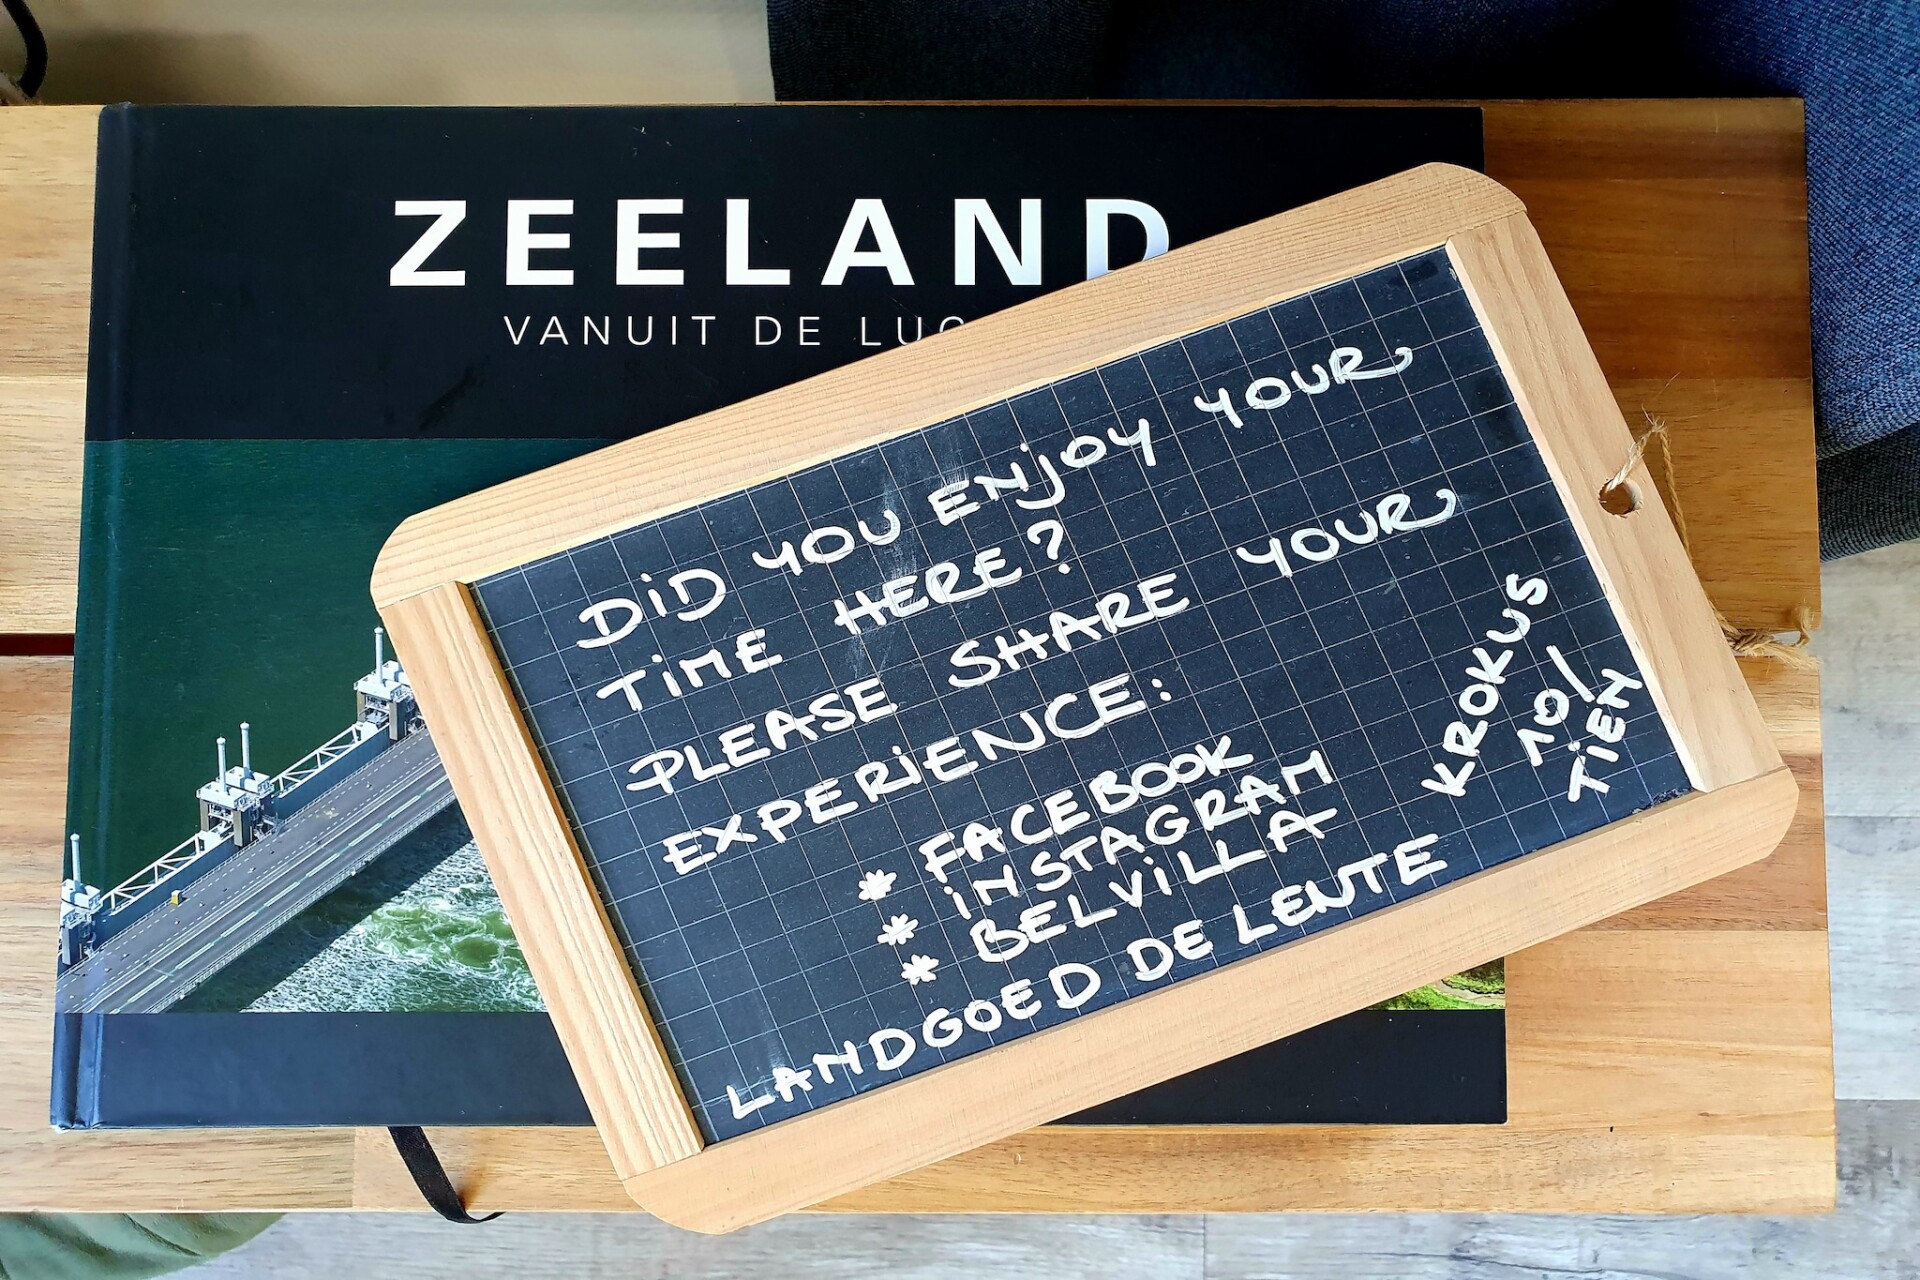 ZEELAND
VANUIT DE
DiD YOU ENjOY YOUR
TiME HERE?
PLEASE SHARE YOUR
EXPERiENCE:
* FACEBOOK
* iNSTAGRAM
* BELViLLA
LANDGOED DE LENTE
KROKUS
10/
TiEN